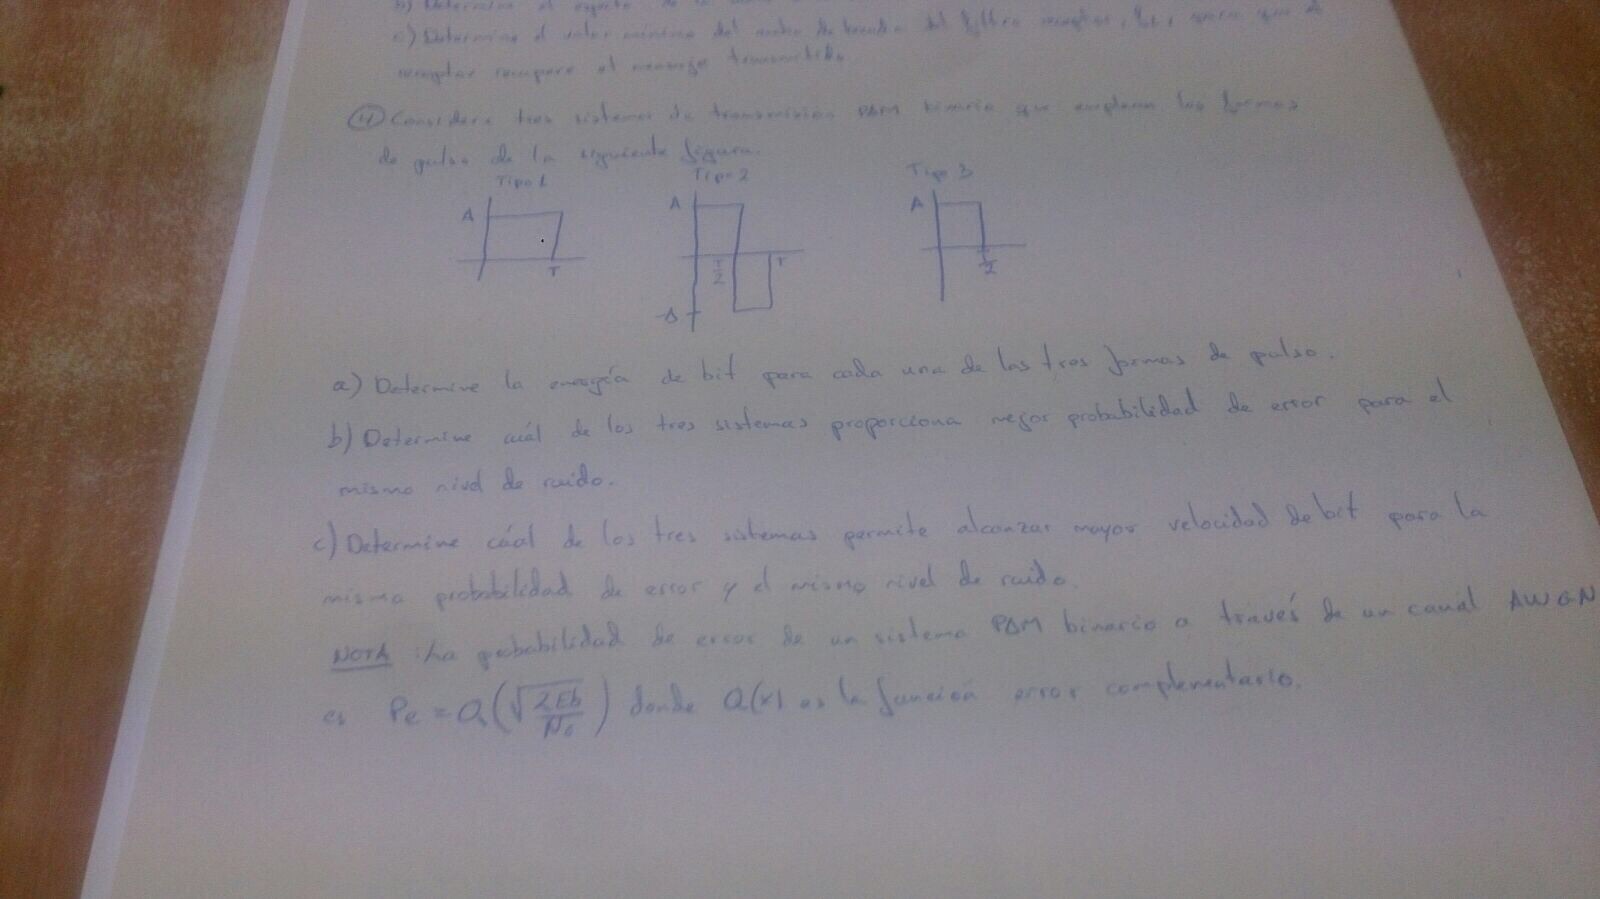 b) Determine el
c) Determine el valor mínimo del ancho de banda del filtro receptor, para que el
receptor recupere el mensaje transmitido.
④ Considere tres sistemas de transmisión PAM binaria que emplean las formas
de pulso de la siguiente figura.
Tipo 1 Tipo 2 Tipo 3
A A A
T T/2 T T/2
-A
a) Determine la energía de bit para cada una de las tres formas de pulso.
b) Determine cuál de los tres sistemas proporciona mejor probabilidad de error para el
mismo nivel de ruido.
c) Determine cúal de los tres sistemas permite alcanzar mayor velocidad de bit para la
misma probabilidad de error y el mismo nivel de ruido.
NOTA: La probabilidad de error de un sistema PAM binario a través de un canal AWGN
es Pe = Q(√(2Eb/N₀)) donde Q(x) es la función error complementario.